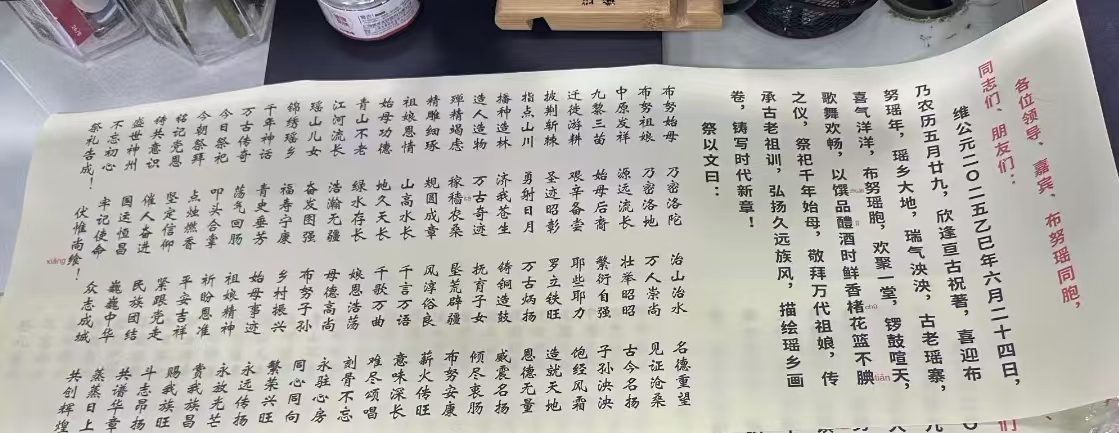 各位领导、嘉宾、布努瑶同胞，
同志们、朋友们：
维公元二〇二五乙巳年六月二十四日，
乃农历五月廿九，欣逢亘古祝著，喜迎布
努瑶年，瑶乡大地，瑞气泱泱，古老瑶寨，
喜气洋洋，布努瑶胞，欢聚一堂，锣鼓喧天，
歌舞欢畅，以馔品醴酒时鲜香楮chǔ花篮不腆tiǎn
之仪，祭祀千年始母，敬拜万代祖娘，传
承古老祖训，弘扬久远族风，描绘瑶乡画
卷，铸写时代新章！
祭以文曰：
布努始母 乃密洛陀 治山治水 名德重望
布努祖娘 乃密洛地 万人崇尚 见证沧桑
中原发祥 源远流长 壮举昭昭 古今名扬
九黎三苗 始母后裔 繁衍自强 子孙泱泱
迁徙游耕 艰辛备尝 耶些耶力 饱经风霜
披荆斩棘 圣迹昭彰 罗立铁旺 造就天地
指点山川 勇射日月 万古炳扬 恩德无量
播种造林 济我苍生 铸铜造鼓 威震名扬
造人造物 万古奇迹 抚育子女 倾尽衷肠
殚精竭虑 稼穑农桑 垦荒辟疆 布努安康
精雕细琢 规圆成章 风淳俗良 薪火传旺
祖娘恩情 山高水长 千言万语 意味深长
始母功德 地久天长 千歌万曲 难尽颂唱
青山不老 绿水存长 娘恩浩荡 刻骨不忘
江河流长 浩瀚无疆 母德高尚 永驻心房
瑶山儿女 奋发图强 布努子孙 同心同向
锦绣瑶乡 福寿宁康 乡村振兴 繁荣兴旺
千年神话 青史垂芳 始母事迹 永远传扬
万古传奇 荡气回肠 祖娘精神 永放光芒
今日祭祀 叩头合掌 祈盼恩准 赉我族昌
今朝祭拜 点烛燃香 平安吉祥 赐我族旺
铭记党恩 坚定信仰 紧跟党走 斗志昂扬
铸共意识 催人奋进 民族团结 共谱华章
盛世神州 国运恒昌 巍巍中华 蒸蒸日上
不忘初心 牢记使命 众志成城 共创辉煌
祭礼告成！ 伏惟尚飨xiǎng！